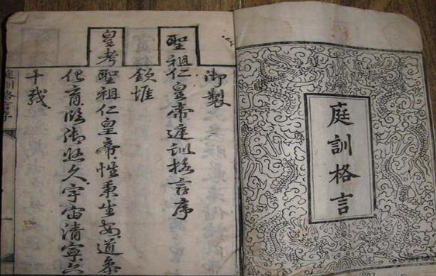 庭訓格言
御製
聖祖仁皇帝庭訓格言序
欽惟
皇考聖祖仁皇帝性秉生安道叅
化育臨御悠久宇宙清寧六
十載